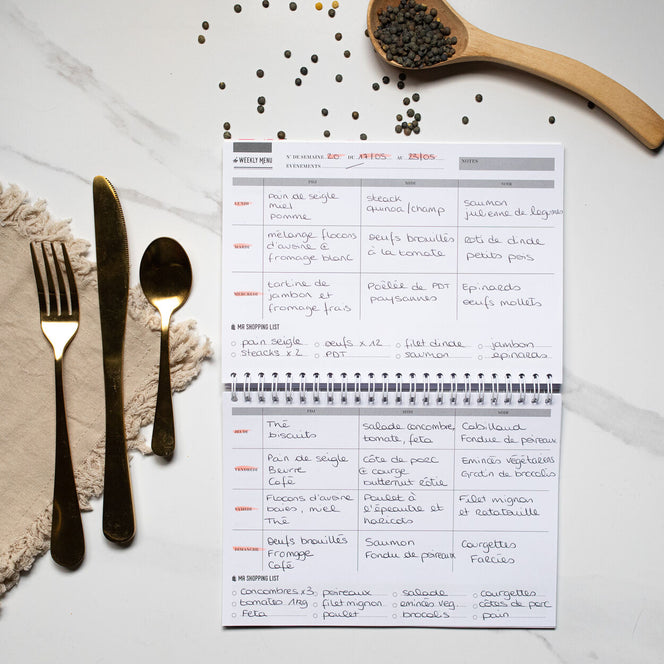 the WEEKLY MENU
N° DE SEMAINE 20 DU 17/05 AU 25/05
ÉVÉNEMENTS
NOTES
PDJ MIDI SOIR
LUNDI
pain de seigle
miel
pomme
steack
quinoa/champ
saumon
julienne de légumes
MARDI
mélange flocons
d'avoine &
fromage blanc
Oeufs brouillés
à la tomate
Roti de dinde
petits pois
MERCREDI
tartine de
jambon et
fromage frais
Poêlée de PDT
paysannes
Epinards
oeufs mollets
MR SHOPPING LIST
pain seigle oeufs x 12 filet dinde jambon
steacks x 2 PDT saumon epinards
PDJ MIDI SOIR
JEUDI
Thé
biscuits
salade concombre,
tomate, feta
Cabillaud
Fondue de poireaux
VENDREDI
Pain de seigle
Beurre
Café
Côte de porc
& courge
butternut rôtie
Emincés végétariens
Gratin de brocolis
SAMEDI
Flocons d'avoine
baies, miel
Thé
Poulet à
l'épeautre et
haricots
Filet mignon
et ratatouille
DIMANCHE
Oeufs brouillés
Fromage
Café
Saumon
Fondu de poireaux
Courgettes
Farcies
MR SHOPPING LIST
concombres x3 poireaux salade courgettes
tomates 1kg filet mignon emincés veg. côtes de porc
Feta poulet brocolis pain